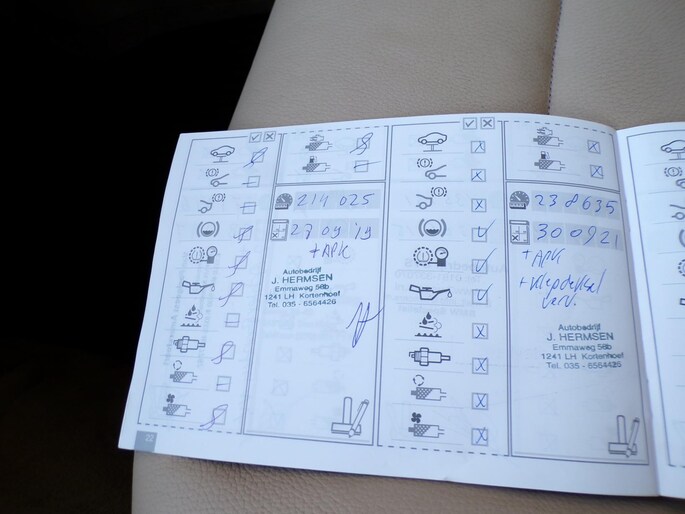 214 025
27 09 '19
+ APK
Autobedrijf
J. HERMSEN
Emmaweg 56b
1241 LH Kortenhoef
Tel. 035 - 6564426
22
238635
300921
+ APK
+ Klepdeksel
Autobedrijf
J. HERMSEN
Emmaweg 56b
1241 LH Kortenhoef
Tel. 035 - 6564426